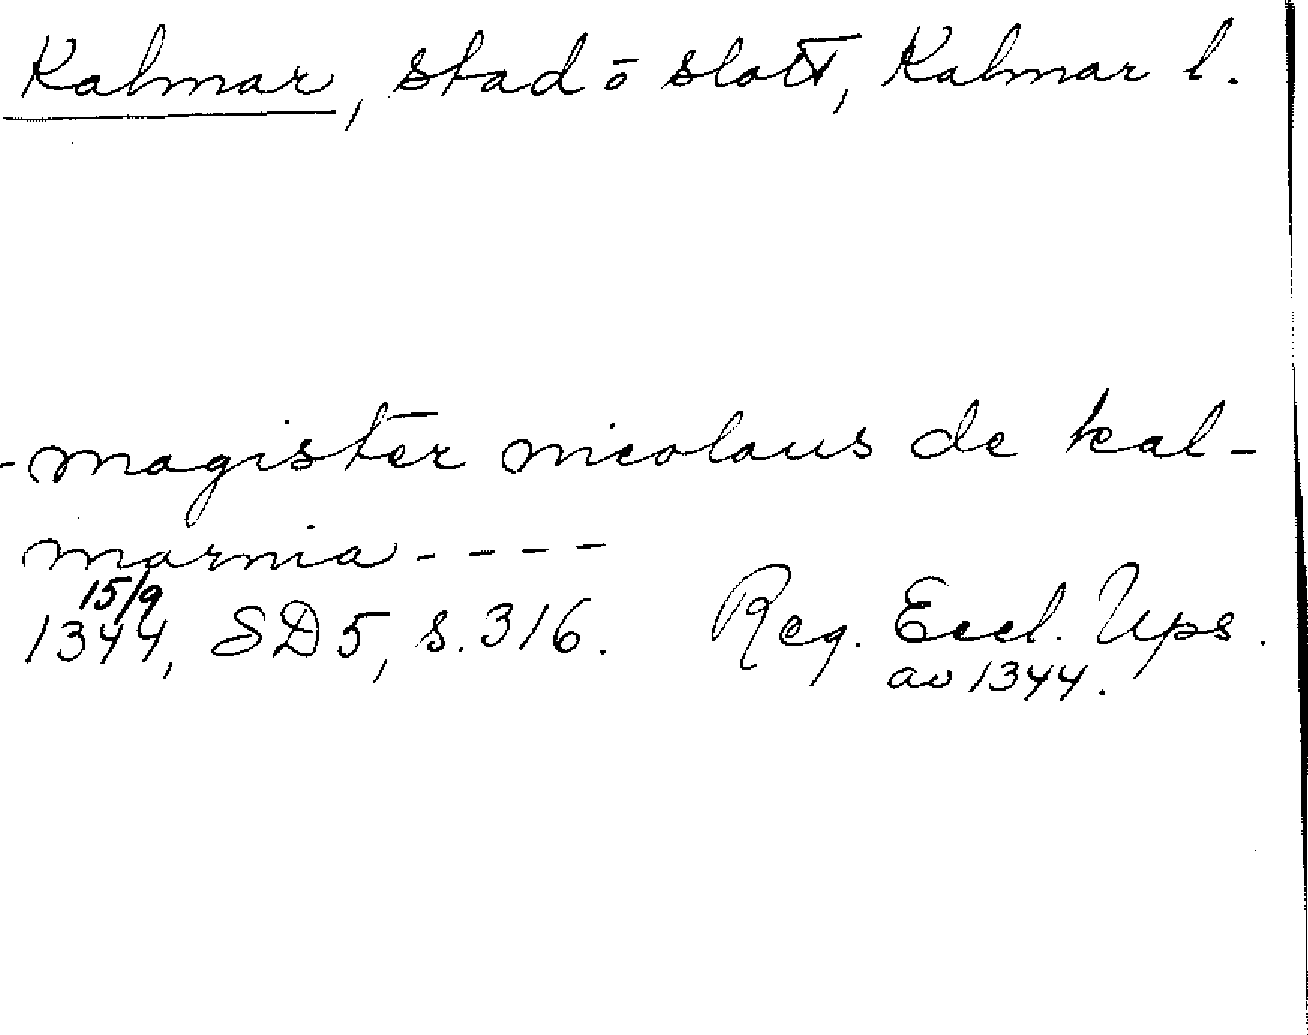 Kalmar, stad o slott, Kalmar l.
-magister nicolaus de kal-
marnia - - - -
15/9
1344, SD5, s. 316. Reg. Eccl. Ups.
av 1344.